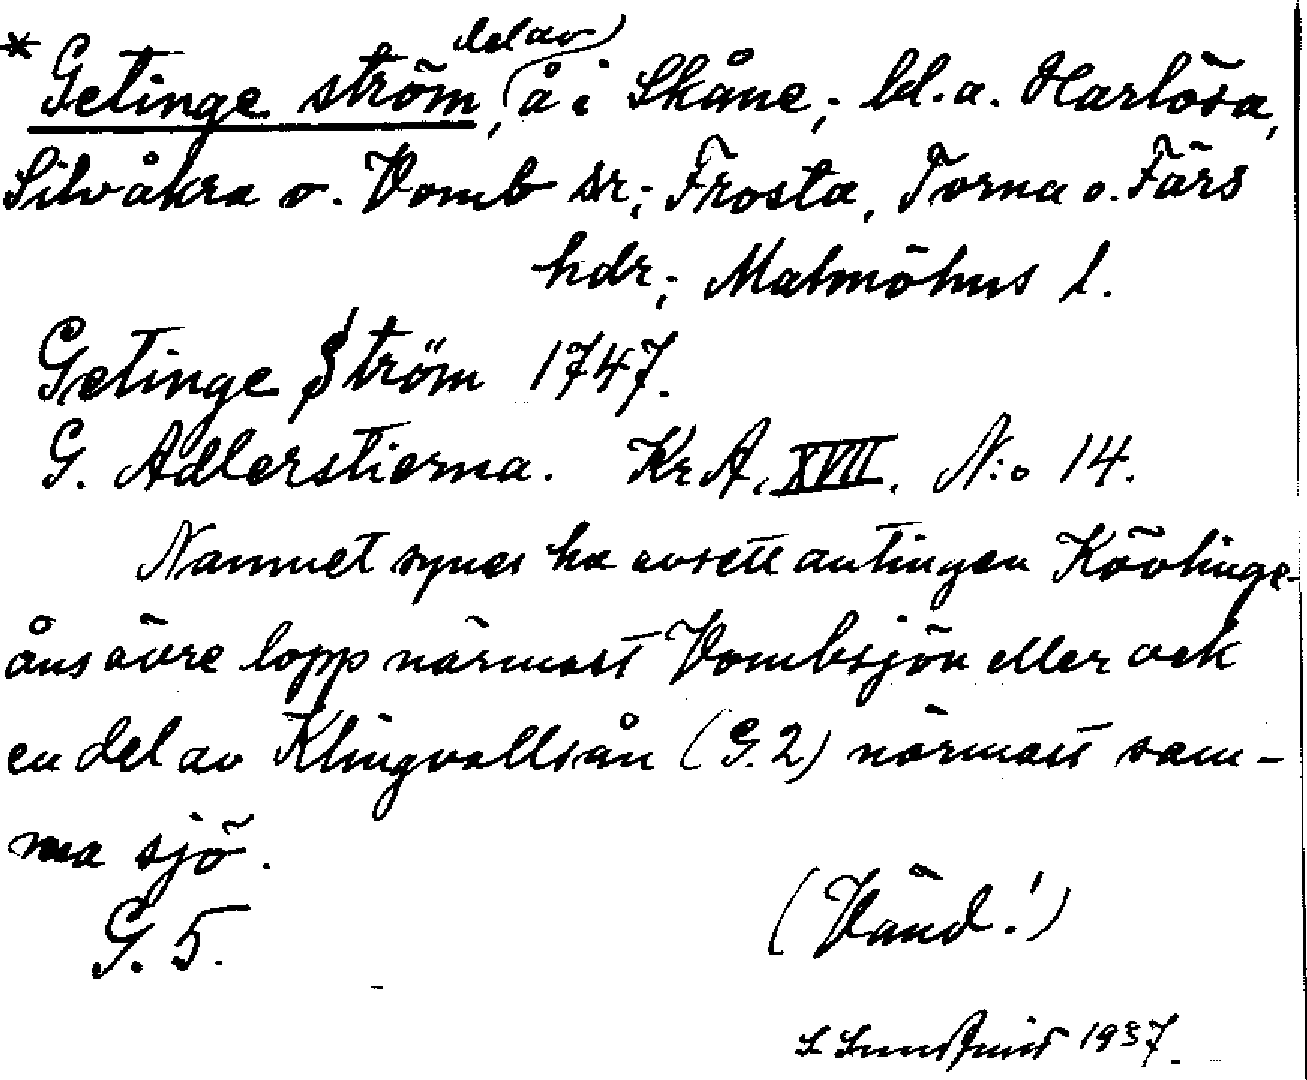 * Getinge ström, (del av) å i Skåne; bl. a. Harlösa,
Silvåkra o. Vomb sr; Frosta, Torna o. Färs
hdr; Malmöhus l.
Getinge Ström 1747.
G. Adlerstierna. Kr A. XVII. N:o 14.
Namnet synes ha avsett antingen Kävlinge-
åns övre lopp närmast Vombsjön eller ock
en del av Klingvallsån (G. 2) närmast sam-
ma sjö.
G. 5.
(Vänd!)
1937.